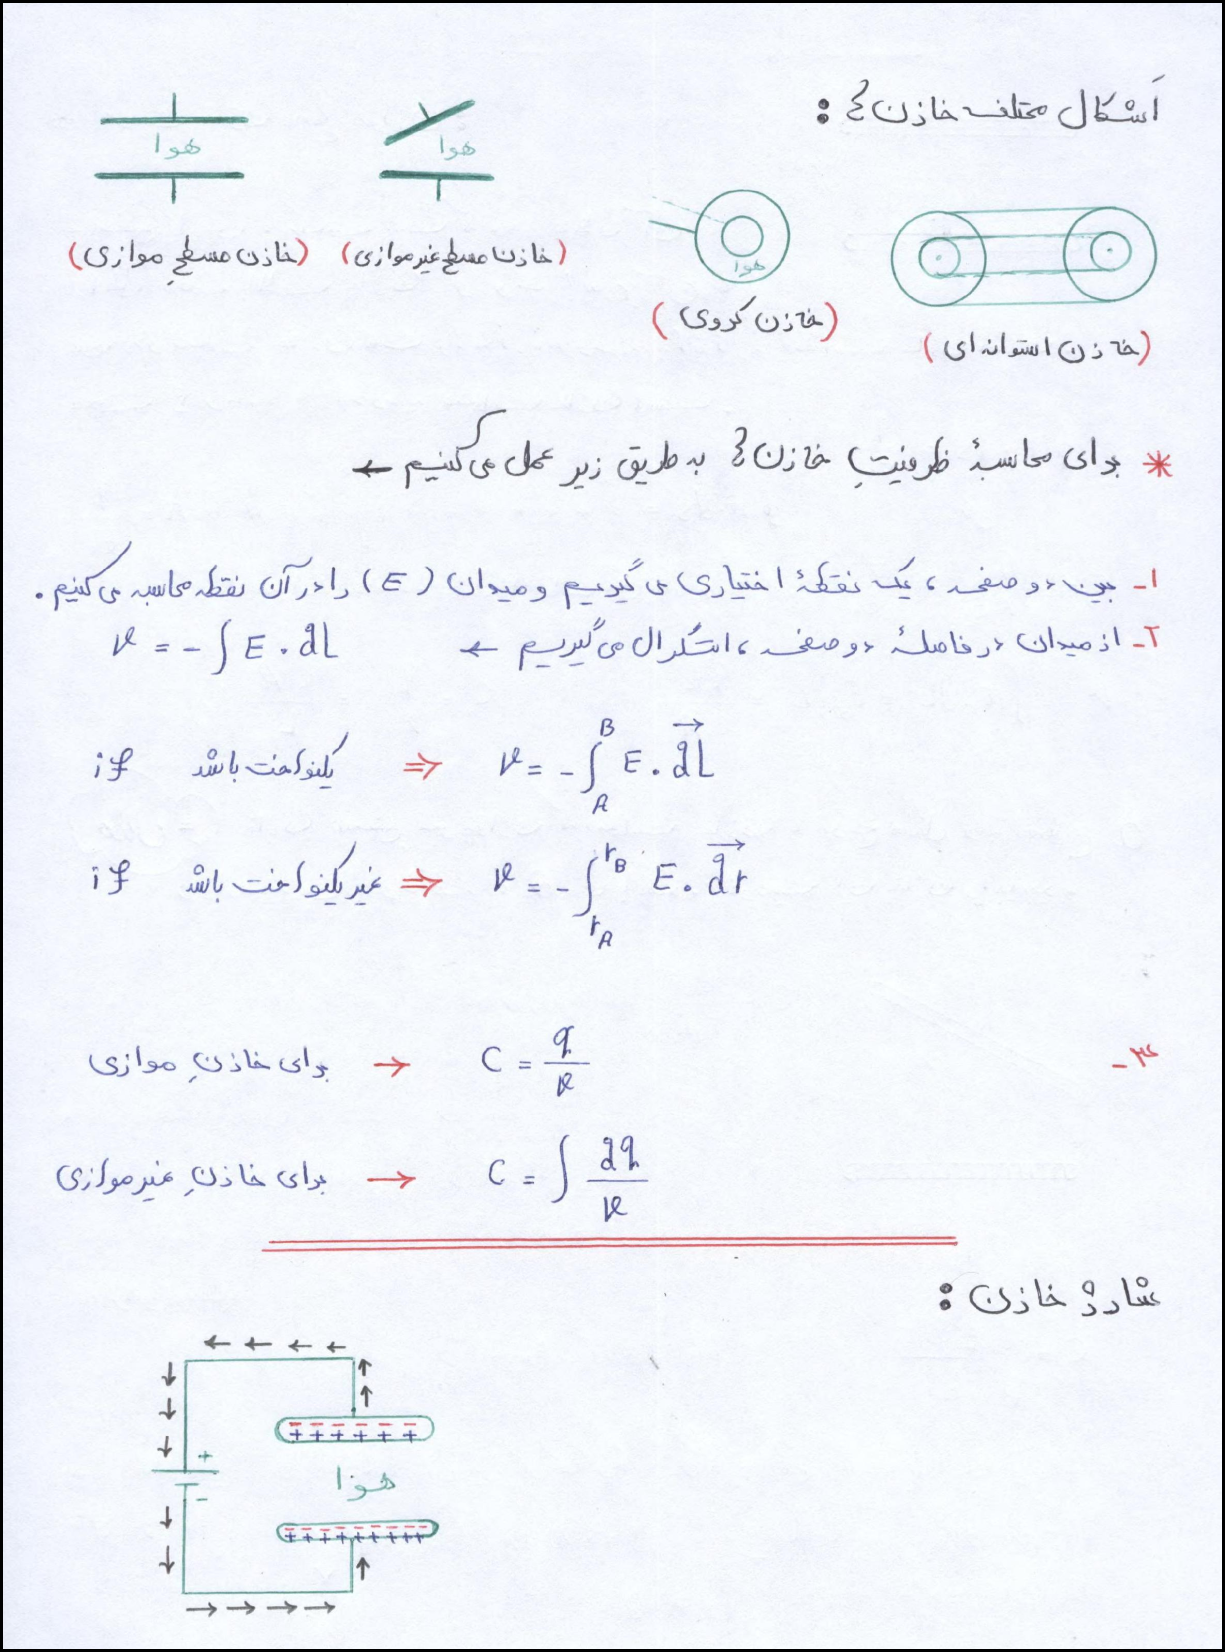 اَشکال مختلف خازن ها :
هوا
هوا
هوا
(خازن مسطحِ موازی)
(خازن مسطح غیرموازی)
(خازن کروی)
(خازن استوانه ای)
* برای محاسبهٔ ظرفیتِ خازن ها به طریق زیر عمل می کنیم ←
۱- بین دو صفحه ، یک نقطهٔ اختیاری می گیریم و میدان (E) را در آن نقطه محاسبه می کنیم .
۲- از میدان در فاصلهٔ دو صفحه ، انتگرال می گیریم ← V = - ∫ E . dL
if یکنواخت باشد ⇒ V = - ∫_A^B E . dL→
if غیر یکنواخت باشد ⇒ V = - ∫_{rA}^{rB} E . dr→
۳- C = q/V → برای خازنِ موازی
C = ∫ dq/V → برای خازنِ غیرموازی
شارژ خازن :
← ← ← ←
- - - - - -
+ + + + + +
+
هوا
-
- - - - - - - -
+ + + + + + + + +
→ → → →